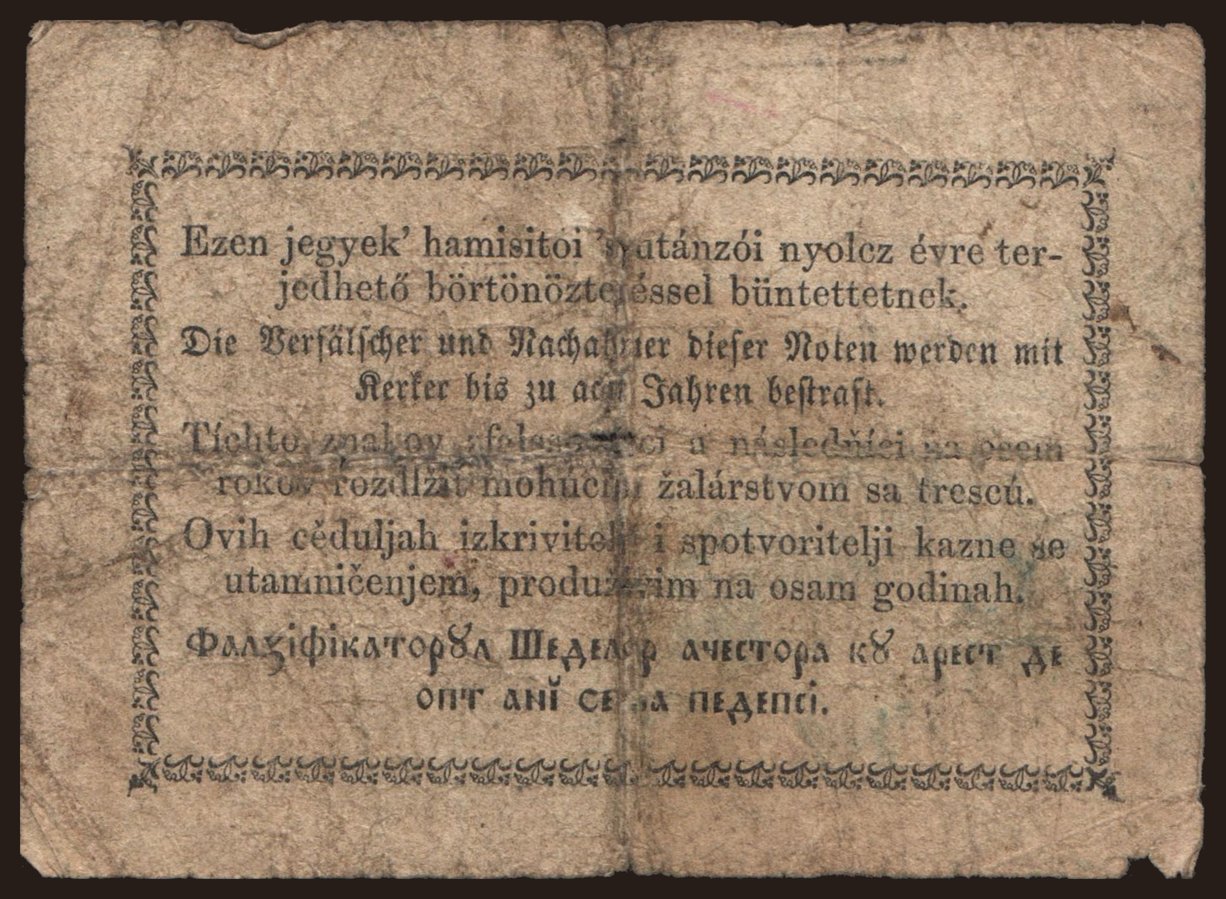 Ezen jegyek' hamisitói 's utánzói nyolcz évre ter-
jedhető börtönöztetéssel büntettetnek.
Die Verfälscher und Nachahmer dieser Noten werden mit
Kerker bis zu acht Jahren bestraft.
Tíchto znakov a následňíci na osem
rokov rozdlžiť mohúcím žalárstvom sa trescú.
Ovih cěduljah izkrivitelji i spotvoritelji kazne se
utamničenjem, produživim na osam godinah.
Фалꙁіфікаторꙋл Шеделор ачестора кꙋ арест де
опт анĭ се ва педепсі.